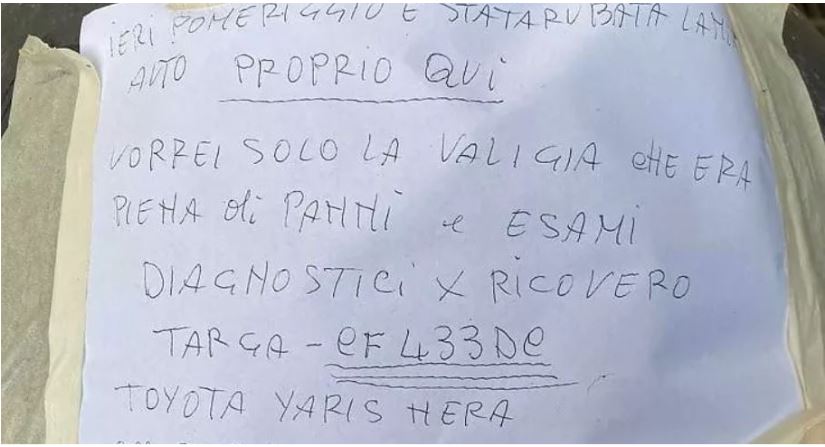 IERI POMERIGGIO E STATA RUBATA LA MIA
AUTO PROPRIO QUI
VORREI SOLO LA VALIGIA CHE ERA
PIENA di PANNI e ESAMI
DIAGNOSTICI X RICOVERO
TARGA - CF433DC
TOYOTA YARIS NERA